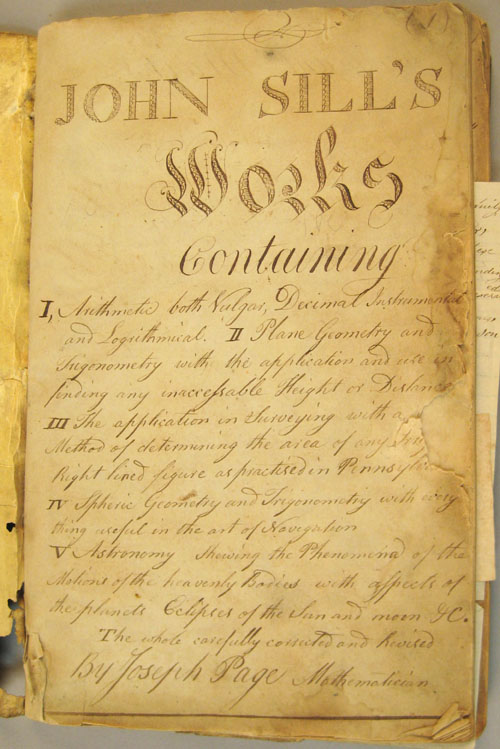 (1)
JOHN SILL'S
Works
Containing
I, Arithmetic both Vulgar, Decimal Instrumental
and Logrithmical. II Plane Geometry and
Trigonometry withe the application and use in
finding any inaccessable Height or Distance
III The application in Surveying with a
Method of determining the area of any
Right lined figure as practised in Pennsylv
IV Spheric Geometry and Trigonometry with every
thing useful in the art of Navigation
V Astronomy Shewing the Phenomena of the
Motions of the heavenly Bodies with aspects of
the planets Eclipses of the Sun and moon &C.
The whole carefully corrected and Revised
By Joseph Page Mathematician